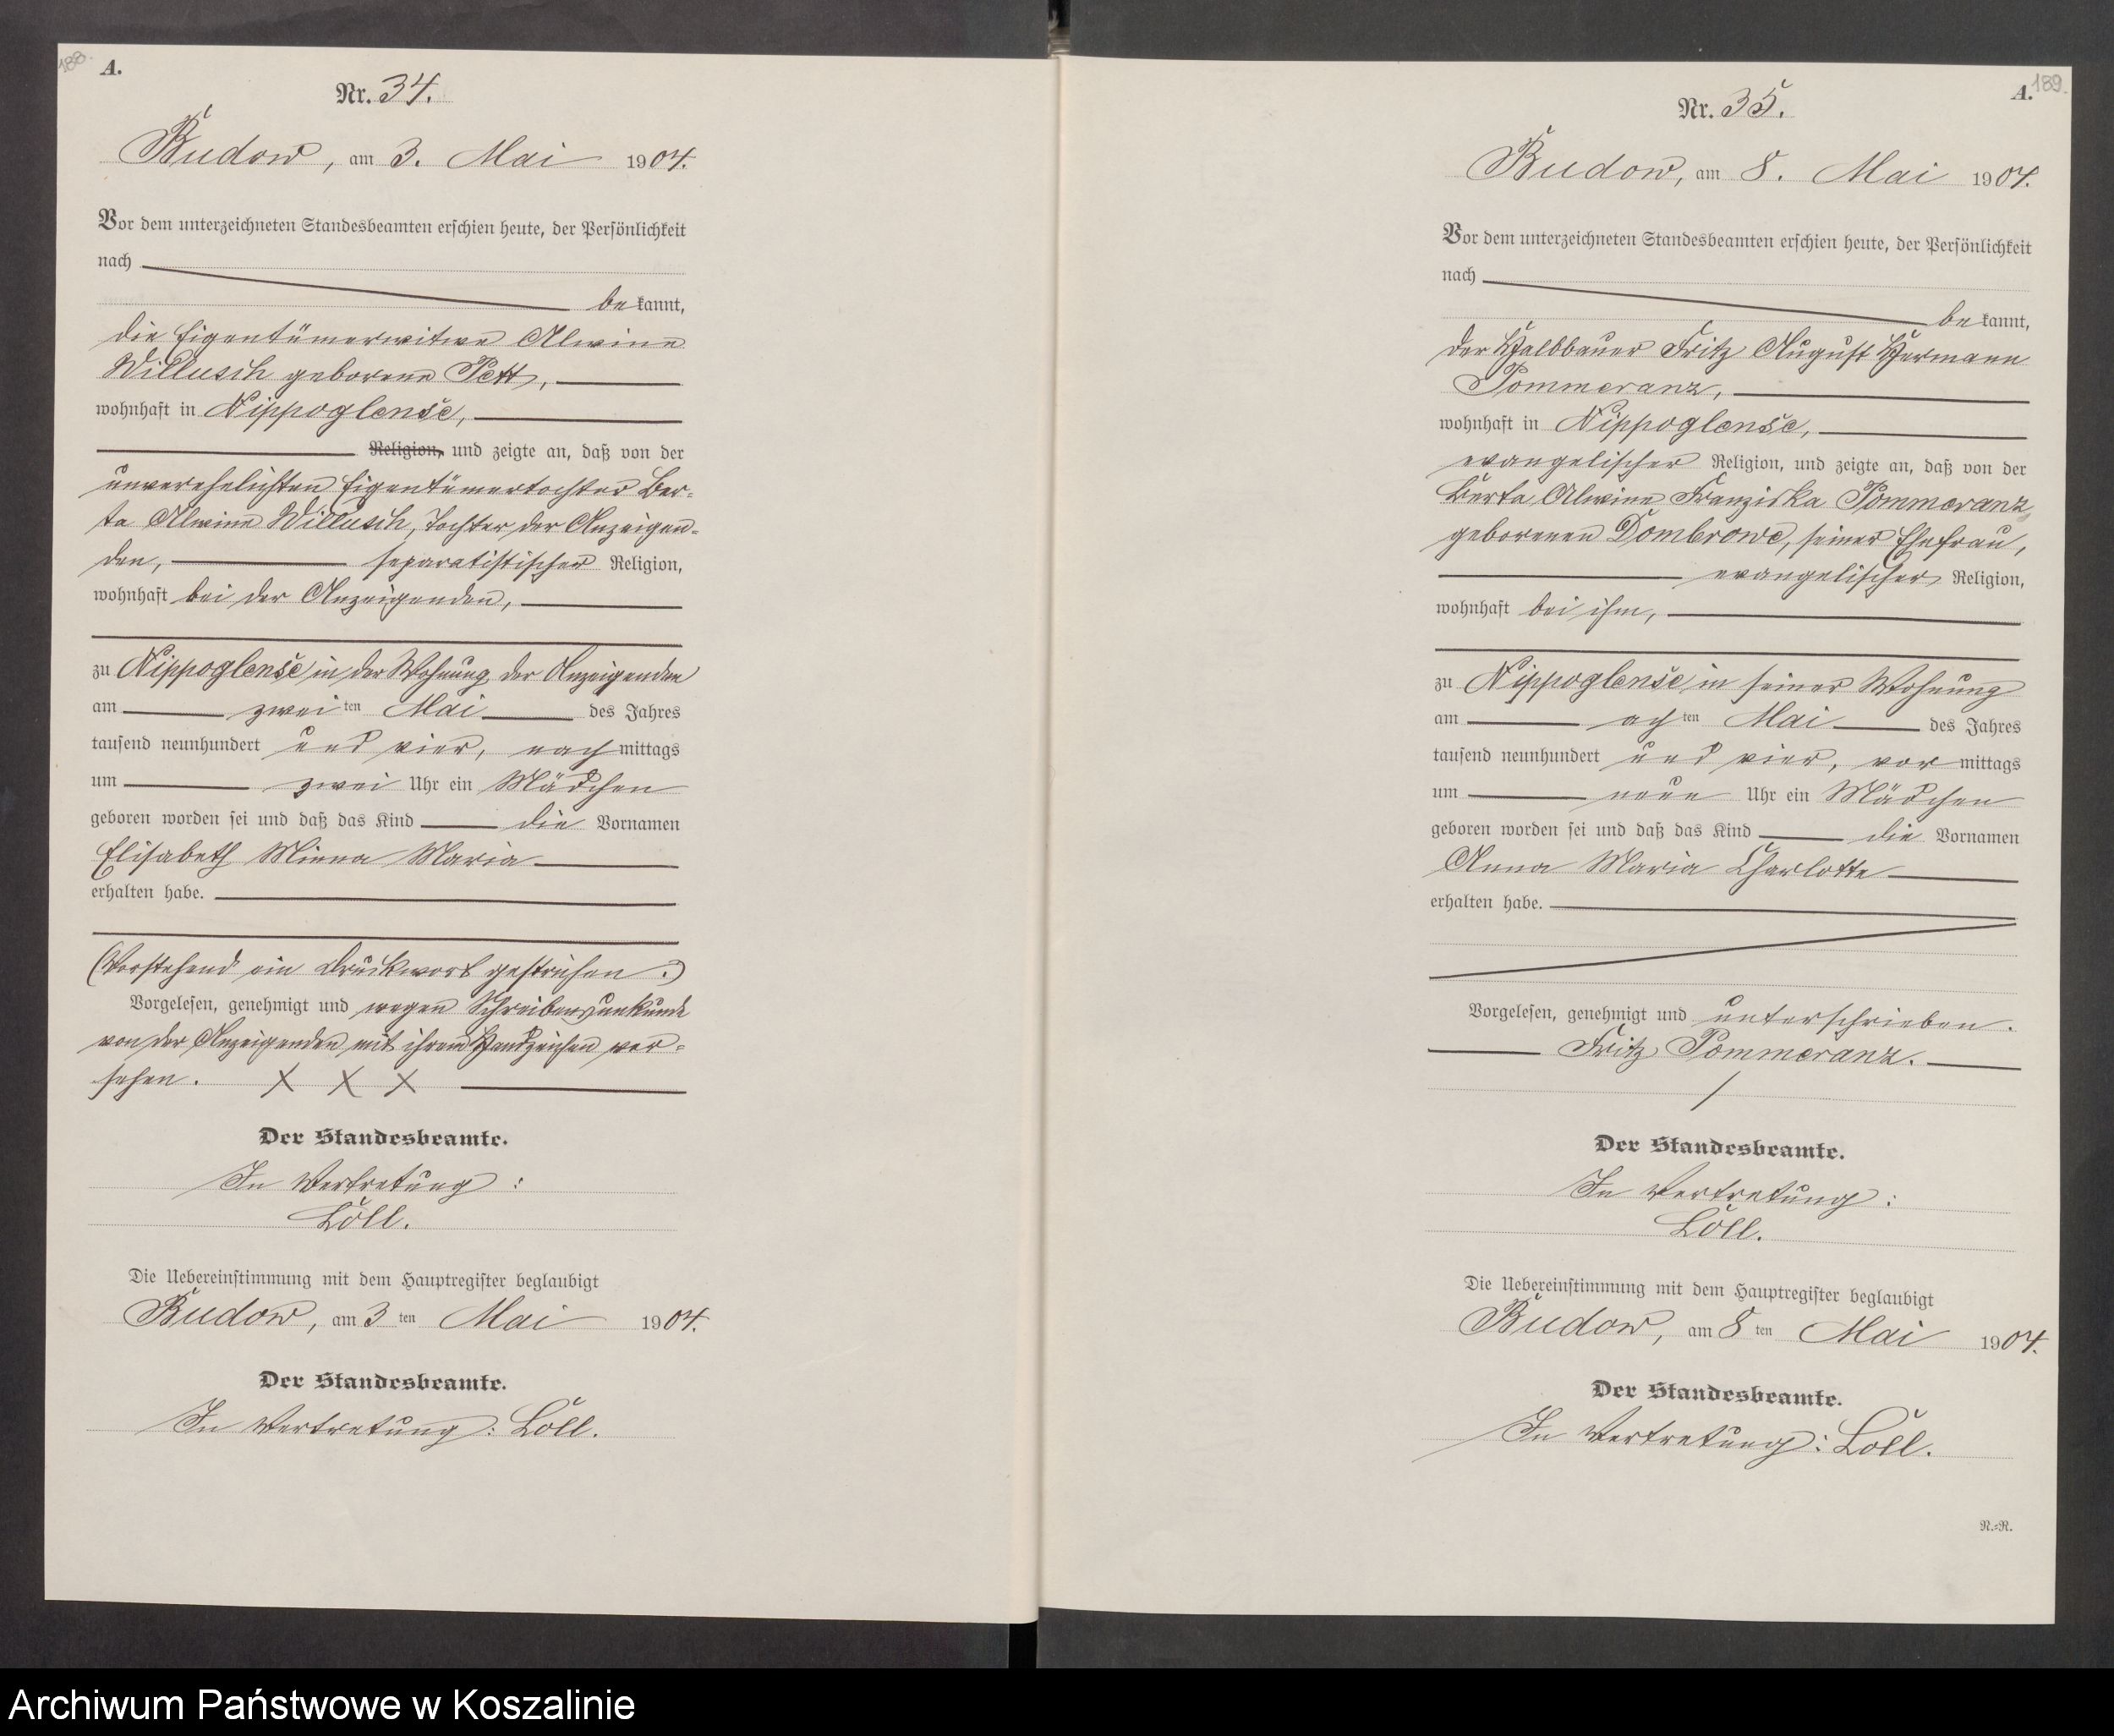 188.
A.
Nr. 34.
Budow, am 3. Mai 1904.
Vor dem unterzeichneten Standesbeamten erschien heute, der Persönlichkeit
nach
bekannt,
die Eigentümerwitwe Alwine
Willusch geborene Pett,
wohnhaft in Nippoglense,
Religion, und zeigte an, daß von der
unverehelichten Eigentümertochter Ber-
ta Alwine Willusch, Tochter der Anzeigen-
den, separatistischer Religion,
wohnhaft bei der Anzeigenden,
zu Nippoglense in der Wohnung der Anzeigenden
am zweiten Mai des Jahres
tausend neunhundert und vier, nachmittags
um zwei Uhr ein Mädchen
geboren worden sei und daß das Kind die Vornamen
Elisabeth Minna Maria
erhalten habe.
(Vorstehend ein Druckwort gestrichen.)
Vorgelesen, genehmigt und wegen Schreibensunkunde
von der Anzeigenden mit ihrem Handzeichen ver-
sehen. X X X
Der Standesbeamte.
In Vertretung:
Löll.
Die Uebereinstimmung mit dem Hauptregister beglaubigt
Budow, am 3ten Mai 1904.
Der Standesbeamte.
In Vertretung: Löll.
189.
A.
Nr. 35.
Budow, am 8. Mai 1904.
Vor dem unterzeichneten Standesbeamten erschien heute, der Persönlichkeit
nach
bekannt,
der Halbbauer Fritz August Hermann
Pommeranz,
wohnhaft in Nippoglense,
evangelischer Religion, und zeigte an, daß von der
Berta Alwine Franziska Pommeranz
geborenen Dombrowe, seiner Ehefrau,
evangelischer Religion,
wohnhaft bei ihm,
zu Nippoglense in seiner Wohnung
am achten Mai des Jahres
tausend neunhundert und vier, vormittags
um neun Uhr ein Mädchen
geboren worden sei und daß das Kind die Vornamen
Anna Maria Charlotte
erhalten habe.
Vorgelesen, genehmigt und unterschrieben.
Fritz Pommeranz.
Der Standesbeamte.
In Vertretung:
Löll.
Die Uebereinstimmung mit dem Hauptregister beglaubigt
Budow, am 8ten Mai 1904.
Der Standesbeamte.
In Vertretung: Löll.
N.=R.
Archiwum Państwowe w Koszalinie